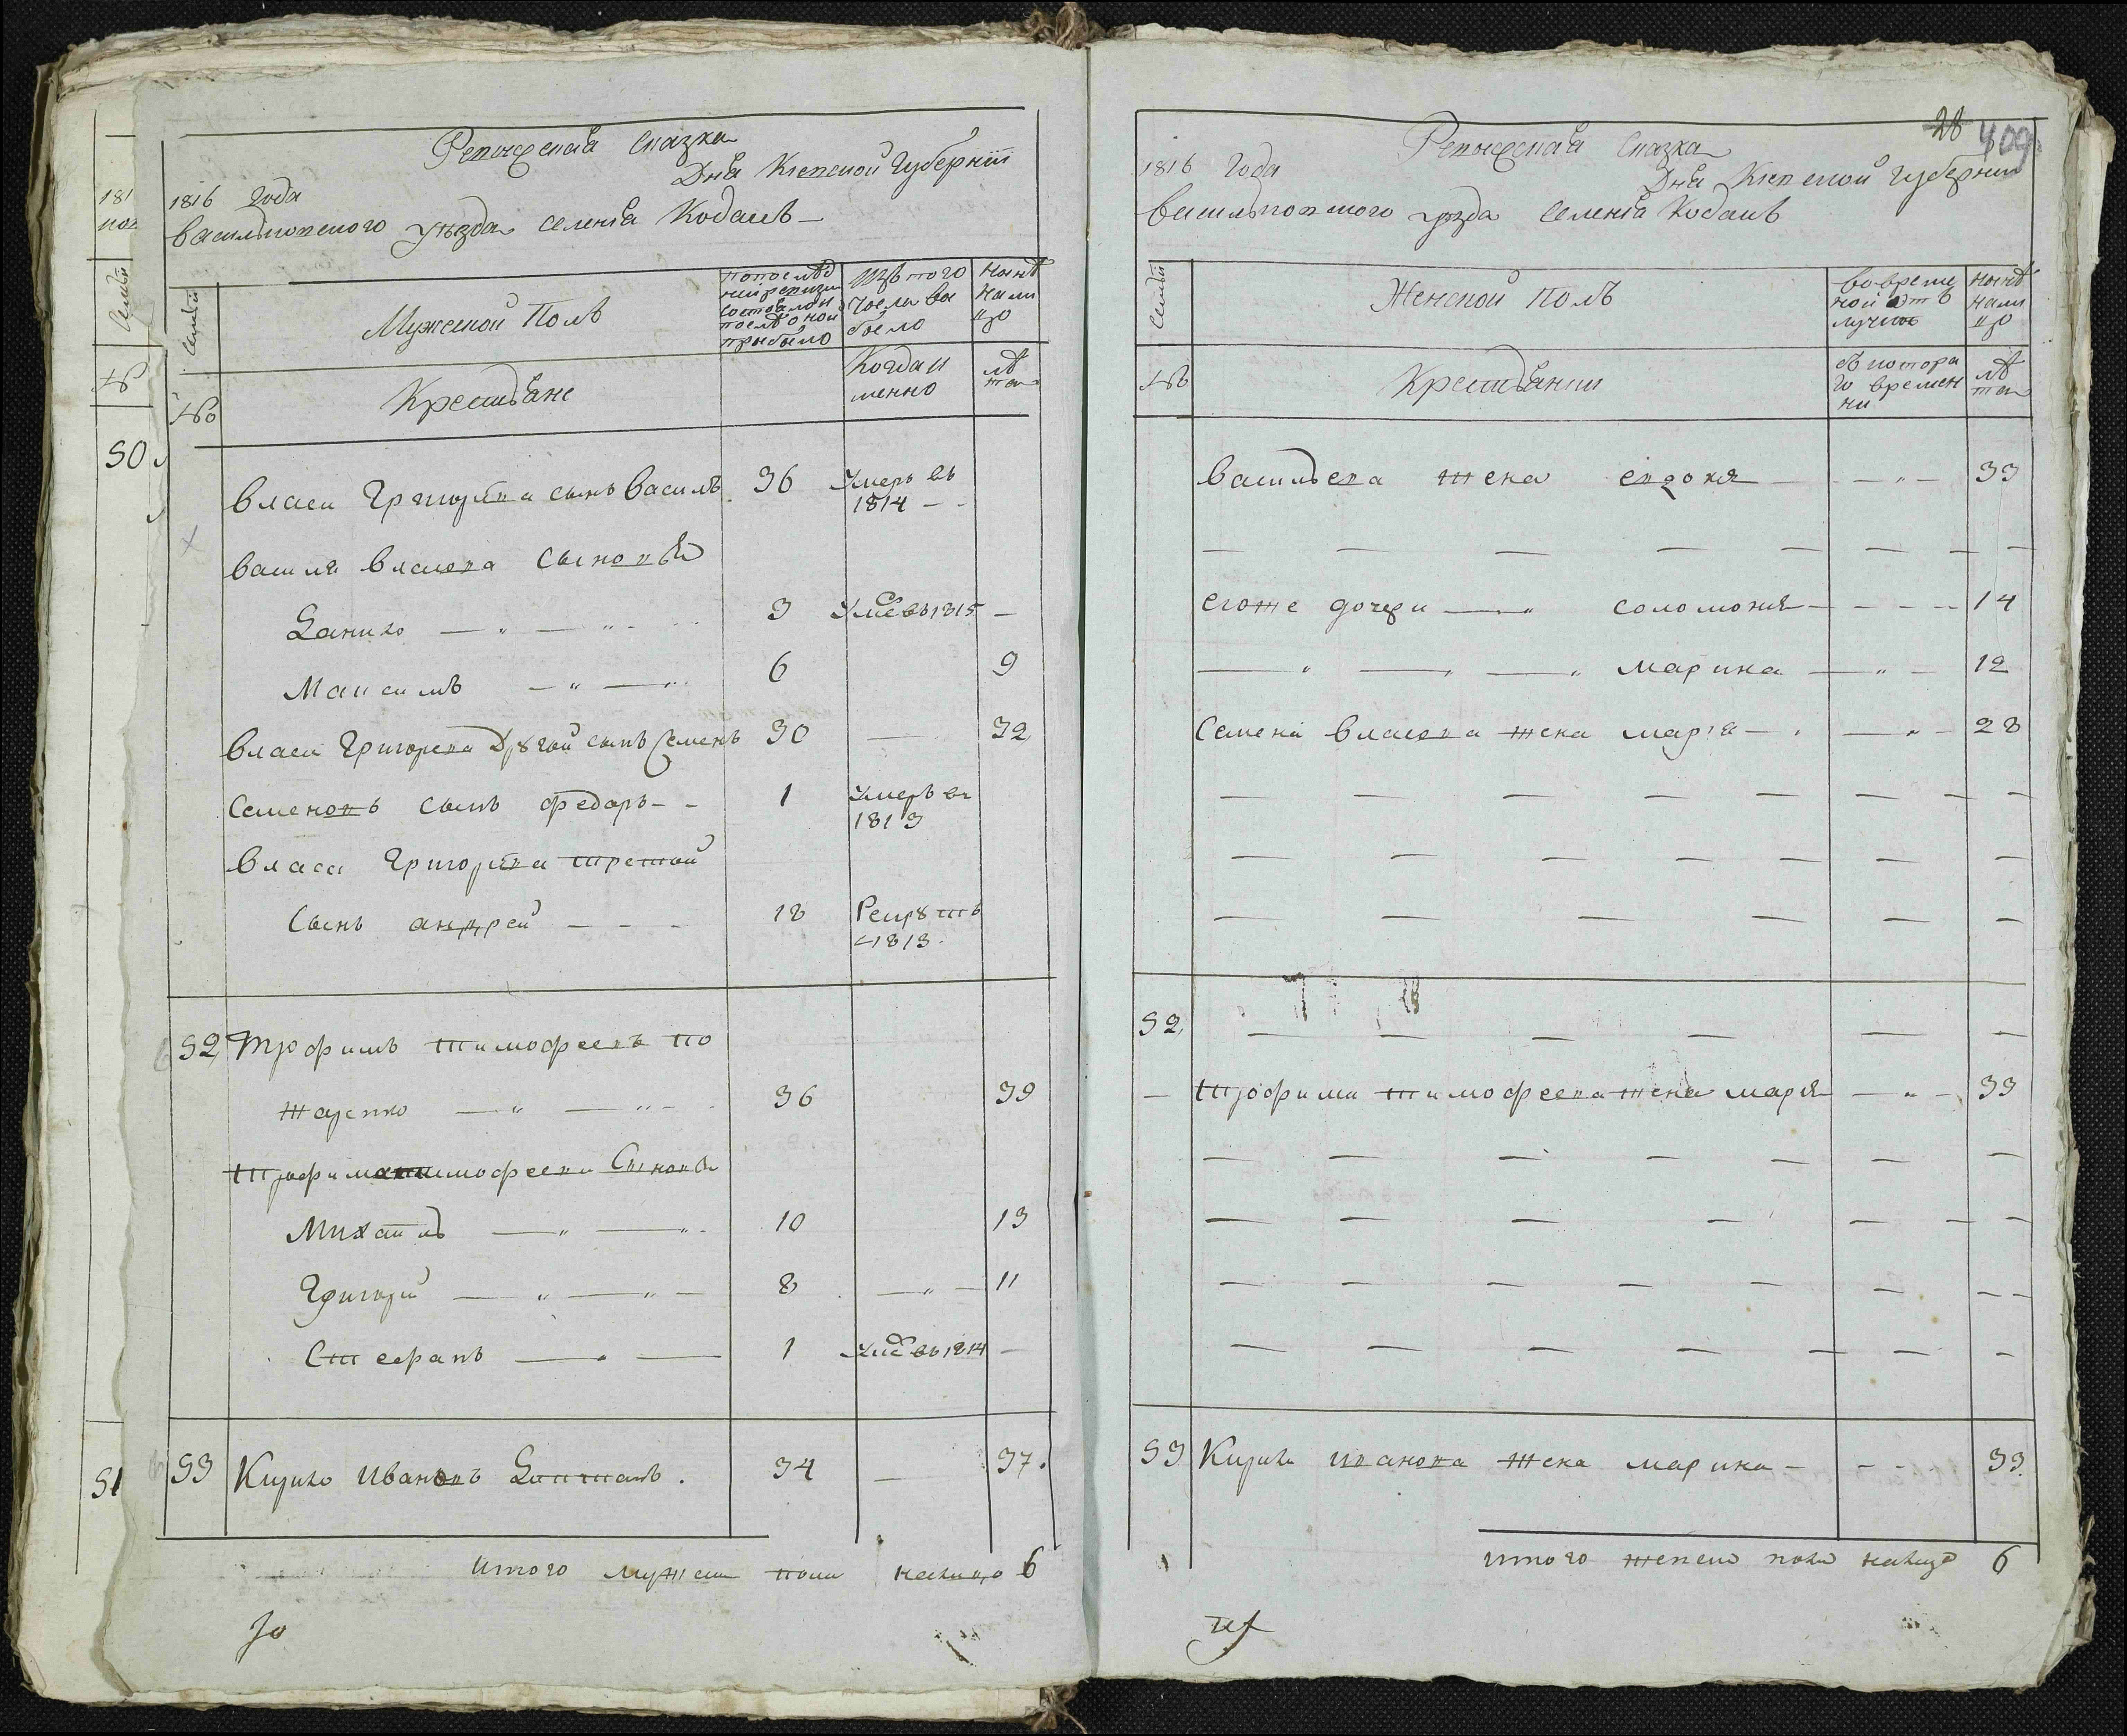 Ревизская Сказка
1816 года Дня Киевской Губернии
Васильковского уезда селения Кодакъ
Семьи
Мужеской Полъ
По последней ревизии состояло и после оной прибыло
Изъ того числа выбыло
Ныне налицо
№
Крестьяне
Когда именно
лета
Власа Григорьева сынъ Василь 36 Умеръ въ 1814
Василя Власова сыновья
Данило 3 Уме въ 1815
Максимъ 6 9
Власа Григорева другой сынъ Семенъ 30 32
Семеновъ сынъ Федоръ 1 Умеръ въ 1813
Власа Григорева третой
Сынъ андрей 18 Рекрутъ 1813.
52 Трофимъ Тимофеевъ
36 39
Трофима тимофеева Сыновья
Михаилъ 10 13
Григорй 8 11
Стефанъ 1 Уме въ 1814
53 Кирило Ивановъ 34 37.
Итого мужеск пола налицо 6
50
51
28 409
Ревизская Сказка
1816 Года Дня Киевской Губернии
Васильковского уезда селения Кодакъ
Семьи
Женской полъ
Во временной отлучке
Ныне налицо
№
Крестьянки
Съ которого времени
лета
Васильева жена евдокия 33
егоже дочери соломония 14
марина 12
Семена Власова жена мария 28
52.
Трофима тимофеева жена мария 33
53 Кирила иванова жена марина 33.
итого женска пола налицо 6